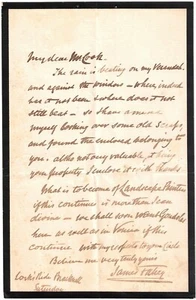 My dear McCook
The rain is beating on my Verandah
and against the window – where indeed
has it not been & where does it not
still beat – So I have amused
myself looking over some old Scraps,
and found the enclosed belonging to
you. altho not very valuable, it being
your property I enclose it with thanks
What is to become of Landscape Painters
if this continues is more than I can
divine – we shall soon want Gondolas
here as well as in Venice if this
continues with my respects to your Circle
Believe me very truly yours
James Fahey
Saturday